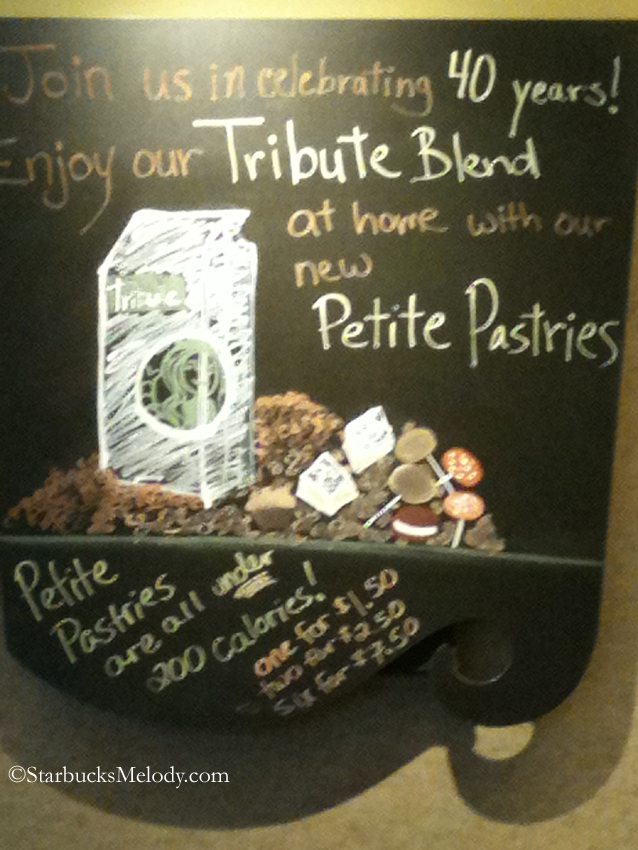 Join us in celebrating 40 years!
Enjoy our Tribute Blend
at home with our
new
Petite Pastries
Tribute
Petite
Pastries
are all under
200 calories!
one for $1.50
two for $2.50
six for $7.50
©StarbucksMelody.com